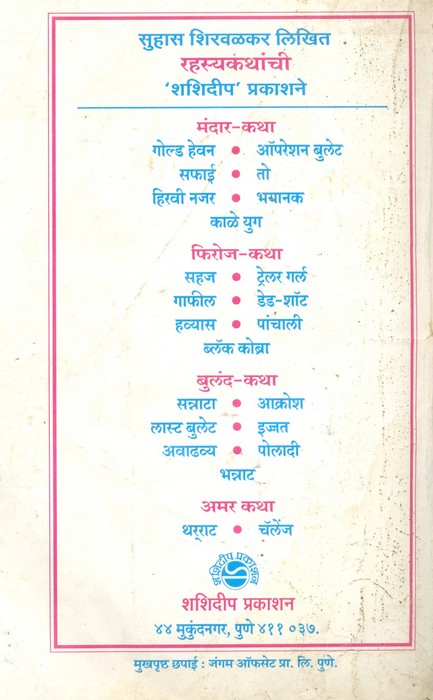 सुहास शिरवळकर लिखित
रहस्यकथांची
‘शशिदीप’ प्रकाशने
मंदार-कथा
गोल्ड हेवन • ऑपरेशन बुलेट
सफाई • तो
हिरवी नजर • भयानक
काळे युग
फिरोज-कथा
सहज • ट्रेलर गर्ल
गाफील • डेड-शॉट
हव्यास • पांचाली
ब्लॅक कोब्रा
बुलंद-कथा
सन्नाटा • आक्रोश
लास्ट बुलेट • इज्जत
अवाढव्य • पोलादी
भन्नाट
अमर कथा
थर्‌राट • चॅलेंज
शशिदीप प्रकाशन
शशिदीप प्रकाशन
४४ मुकुंदनगर, पुणे ४११ ०३७.
मुखपृष्ठ छपाई : जंगम ऑफसेट प्रा. लि. पुणे.